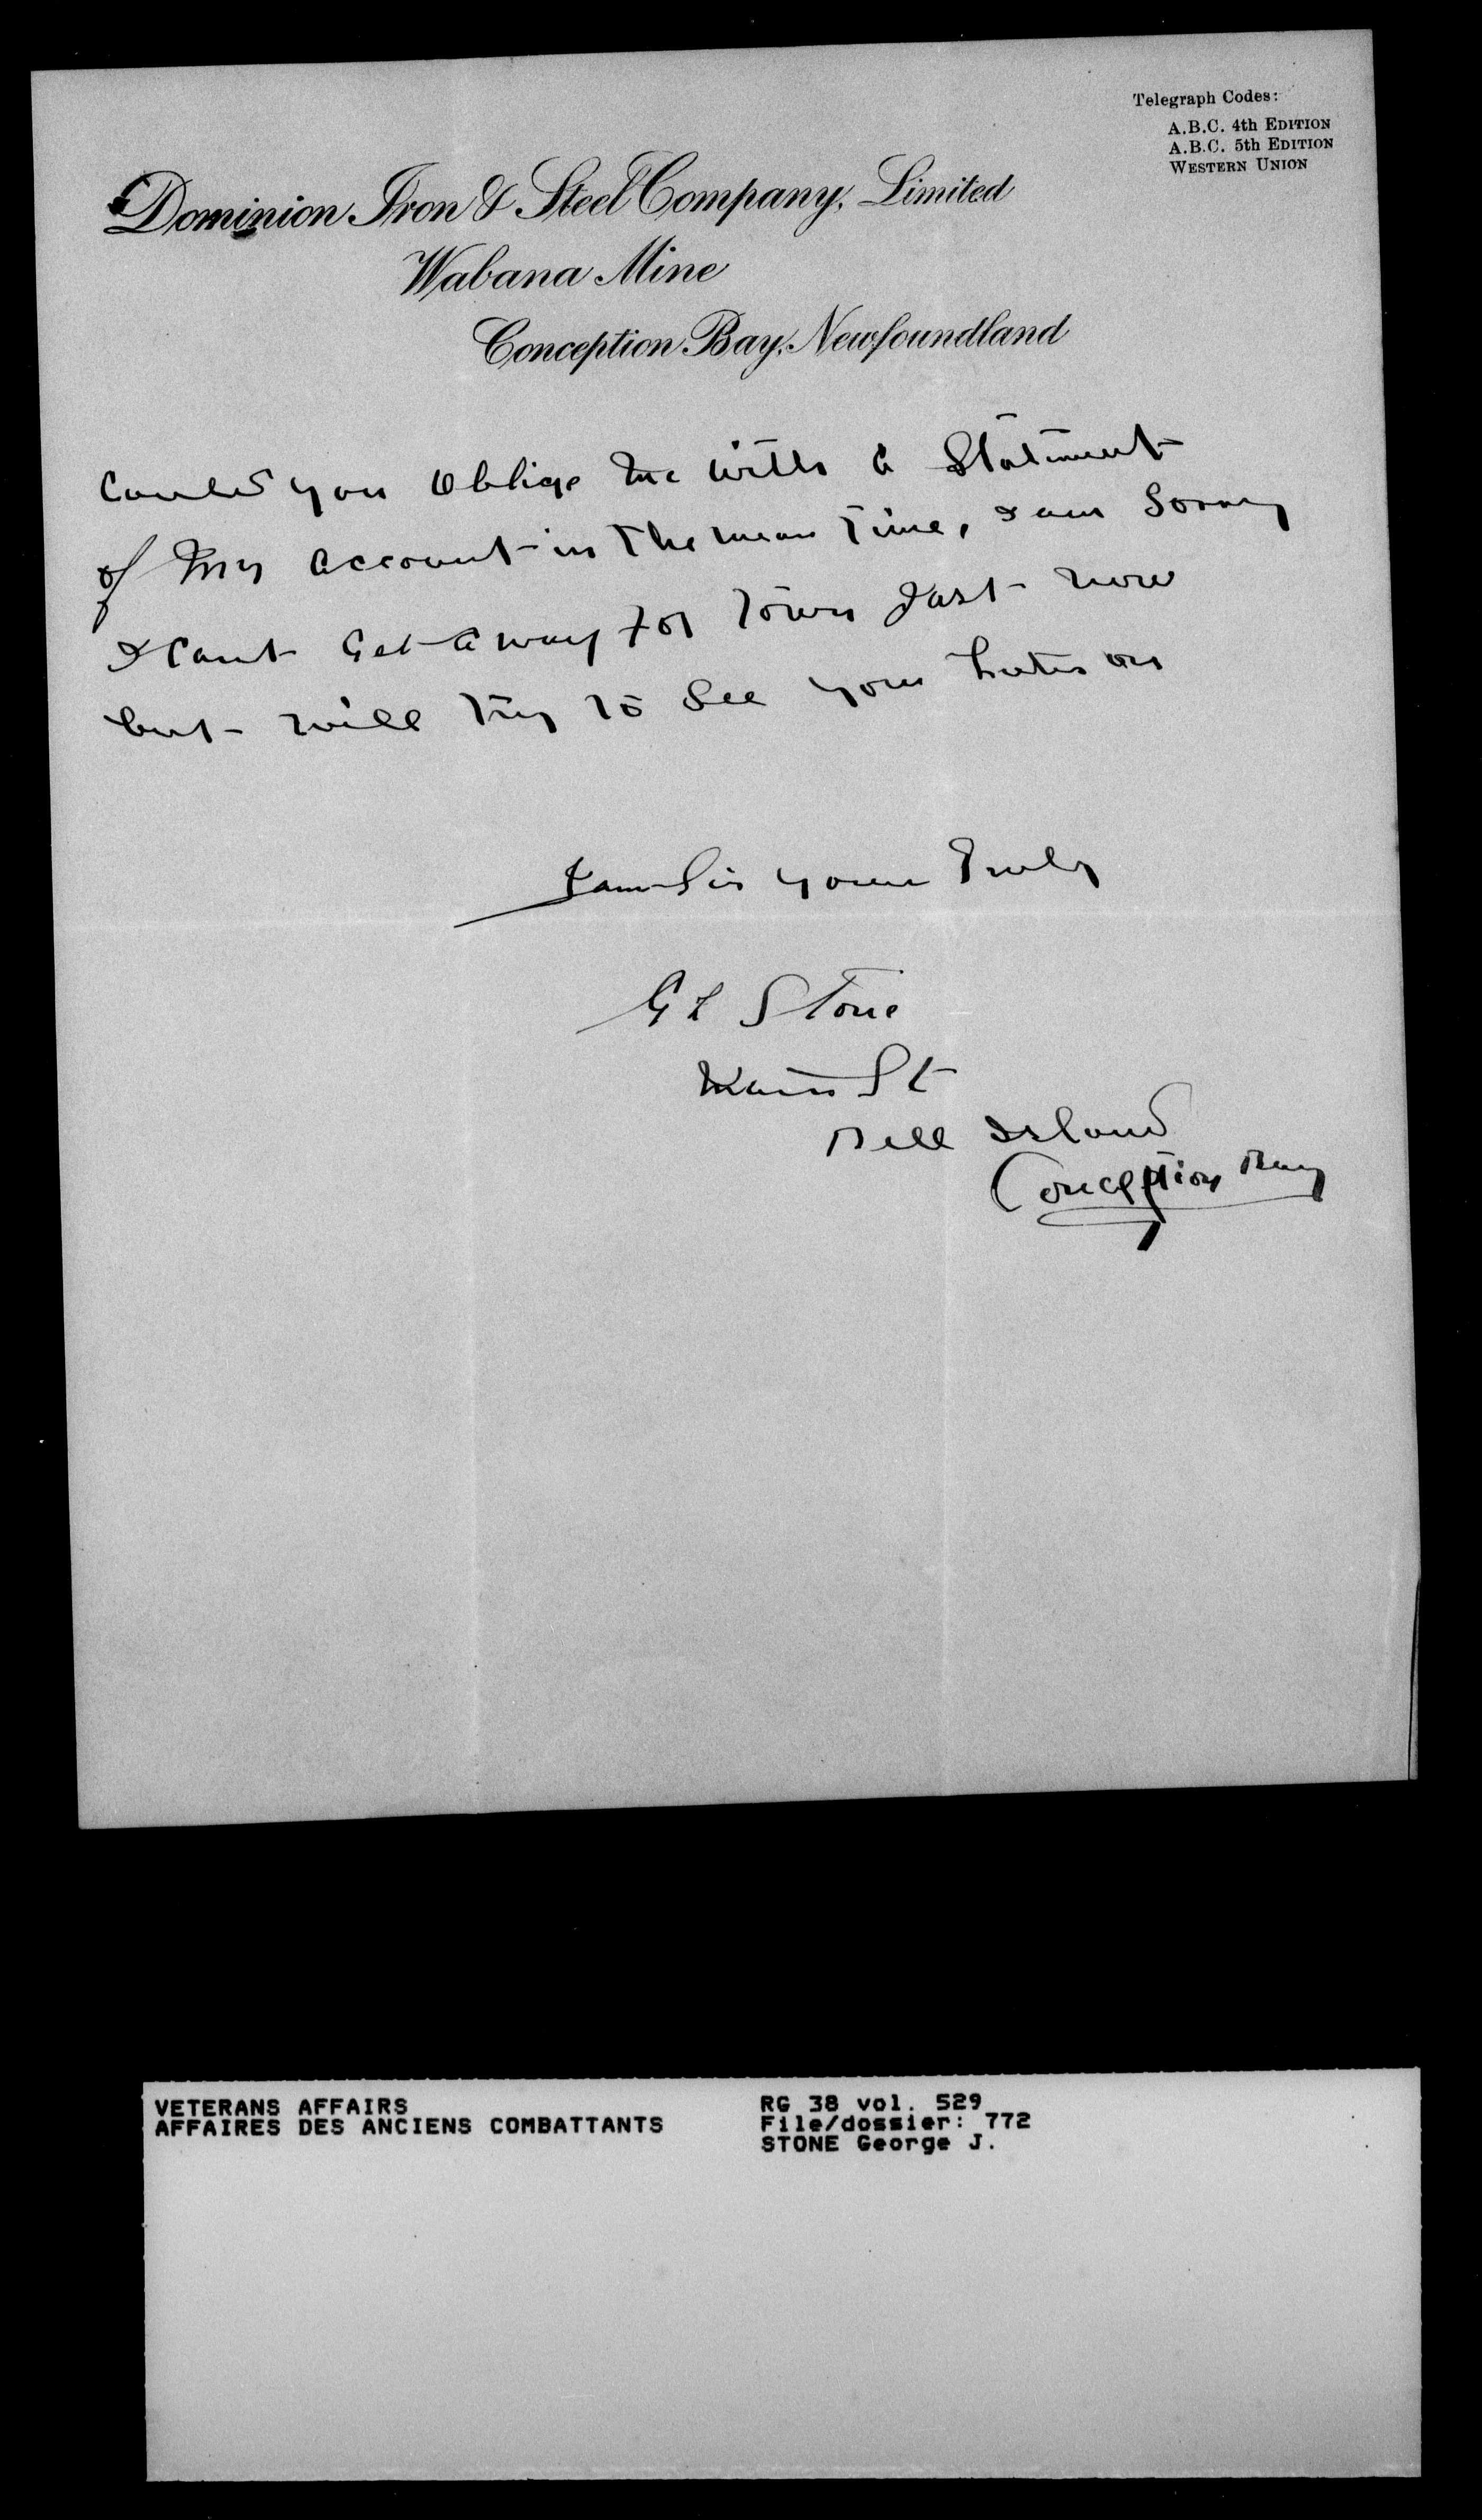 Telegraph Codes:
A.B.C. 4th EDITION
A.B.C. 5th EDITION
WESTERN UNION
Dominion Iron & Steel Company, Limited
Wabana Mine
Conception Bay, Newfoundland
Could you Oblige Me with a Statment
of My Account in the mean Time, I am Sorry
I Cant Get Away for Town Just now
but will Try to See you Later on
I am Sir yours Truly
G L Stone
Main St
Bell Island
Conception Bay
VETERANS AFFAIRS
AFFAIRES DES ANCIENS COMBATTANTS
RG 38 vol. 529
File/dossier: 772
STONE George J.